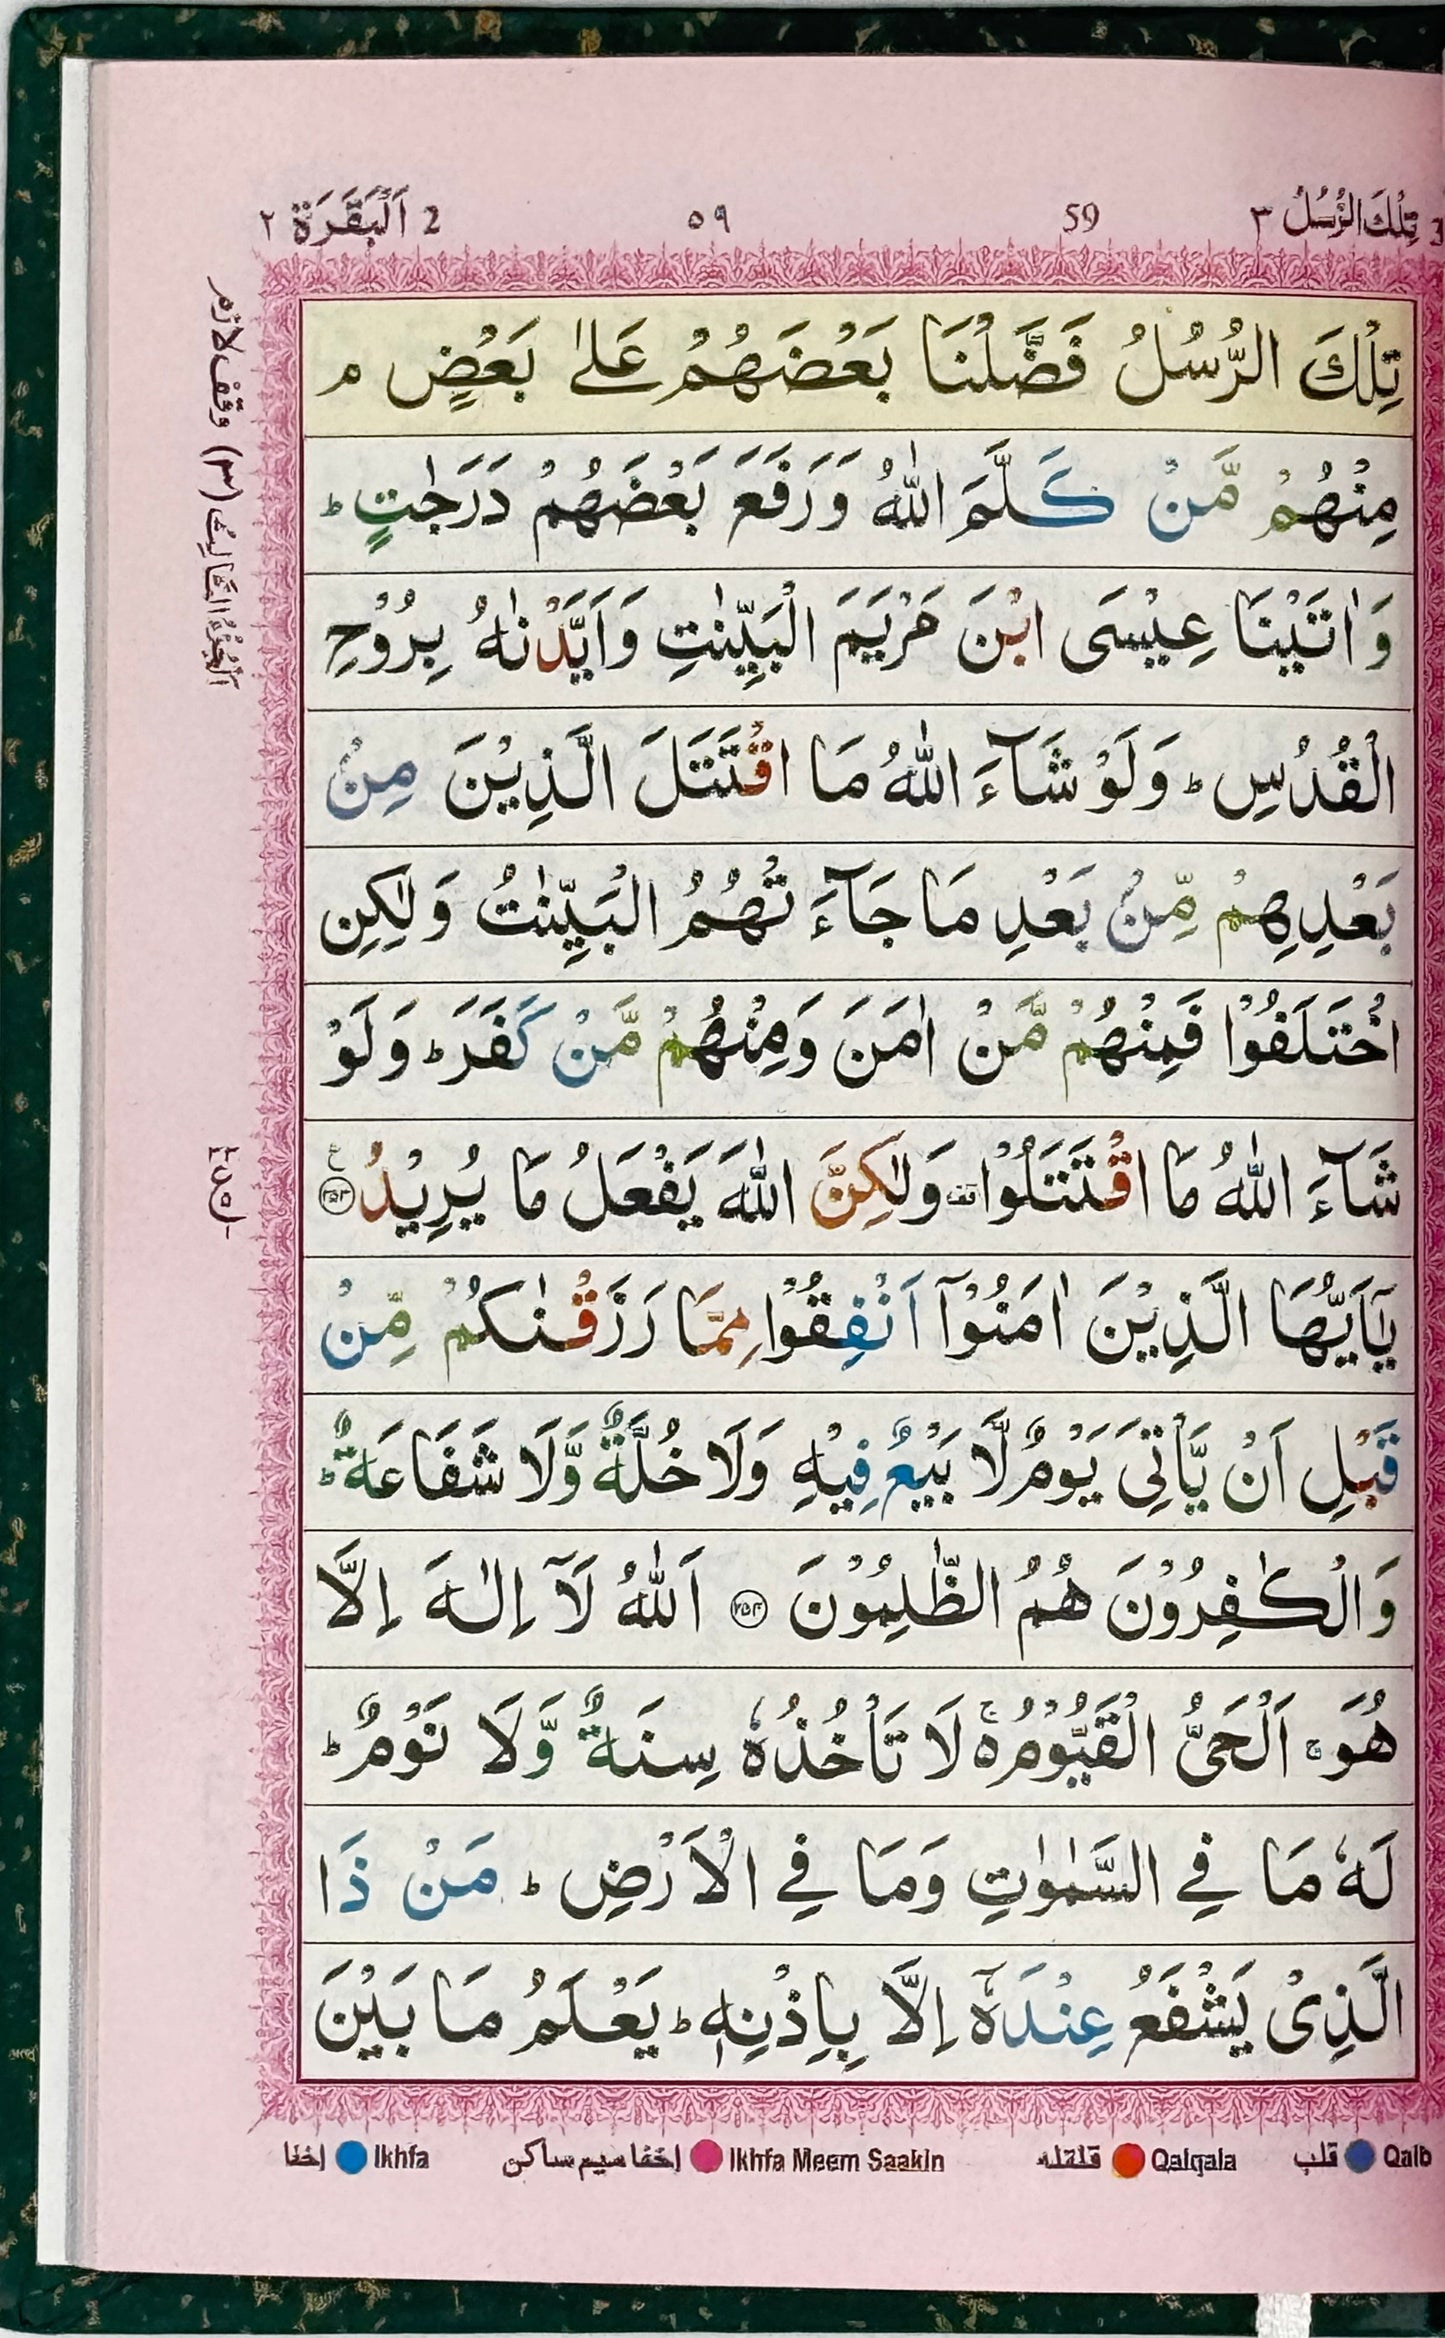 3 تِلْكَ الرُّسُلُ ٣ 59 ٥٩ 2 اَلْبَقَرَة ٢
تِلْكَ الرُّسُلُ فَضَّلْنَا بَعْضَهُمْ عَلٰى بَعْضٍ ۘ
مِنْهُمْ مَّنْ كَلَّمَ اللّٰهُ وَرَفَعَ بَعْضَهُمْ دَرَجٰتٍ ؕ
وَاٰتَيْنَا عِيْسَى ابْنَ مَرْيَمَ الْبَيِّنٰتِ وَاَيَّدْنٰهُ بِرُوْحِ
الْقُدُسِ ؕ وَلَوْ شَآءَ اللّٰهُ مَا اقْتَتَلَ الَّذِيْنَ مِنْۢ
بَعْدِهِمْ مِّنْۢ بَعْدِ مَا جَآءَ تْهُمُ الْبَيِّنٰتُ وَلٰكِنِ
اخْتَلَفُوْا فَمِنْهُمْ مَّنْ اٰمَنَ وَمِنْهُمْ مَّنْ كَفَرَ ؕ وَلَوْ
شَآءَ اللّٰهُ مَا اقْتَتَلُوْا وَلٰكِنَّ اللّٰهَ يَفْعَلُ مَا يُرِيْدُ ۧ ﴿٢٥٣﴾
يٰۤاَيُّهَا الَّذِيْنَ اٰمَنُوْۤا اَنْفِقُوْا مِمَّا رَزَقْنٰكُمْ مِّنْ
قَبْلِ اَنْ يَّاْتِىَ يَوْمٌ لَّا بَيْعٌ فِيْهِ وَلَا خُلَّةٌ وَّلَا شَفَاعَةٌ ؕ
وَالْكٰفِرُوْنَ هُمُ الظّٰلِمُوْنَ ﴿٢٥٤﴾ اَللّٰهُ لَاۤ اِلٰهَ اِلَّا
هُوَ ۚ اَلْحَىُّ الْقَيُّوْمُ ۬ۚ لَا تَاْخُذُهٗ سِنَةٌ وَّلَا نَوْمٌ ؕ
لَهٗ مَا فِى السَّمٰوٰتِ وَمَا فِى الْاَرْضِ ؕ مَنْ ذَا
الَّذِىْ يَشْفَعُ عِنْدَهٗۤ اِلَّا بِاِذْنِهٖ ؕ يَعْلَمُ مَا بَيْنَ
اَلْجُزْءُ الثَّالِثُ (٣) وقف لازم
Qalb قلب Qalqala قلقله Ikhfa Meem Saakin اخفا میم ساکن Ikhfa اخفا